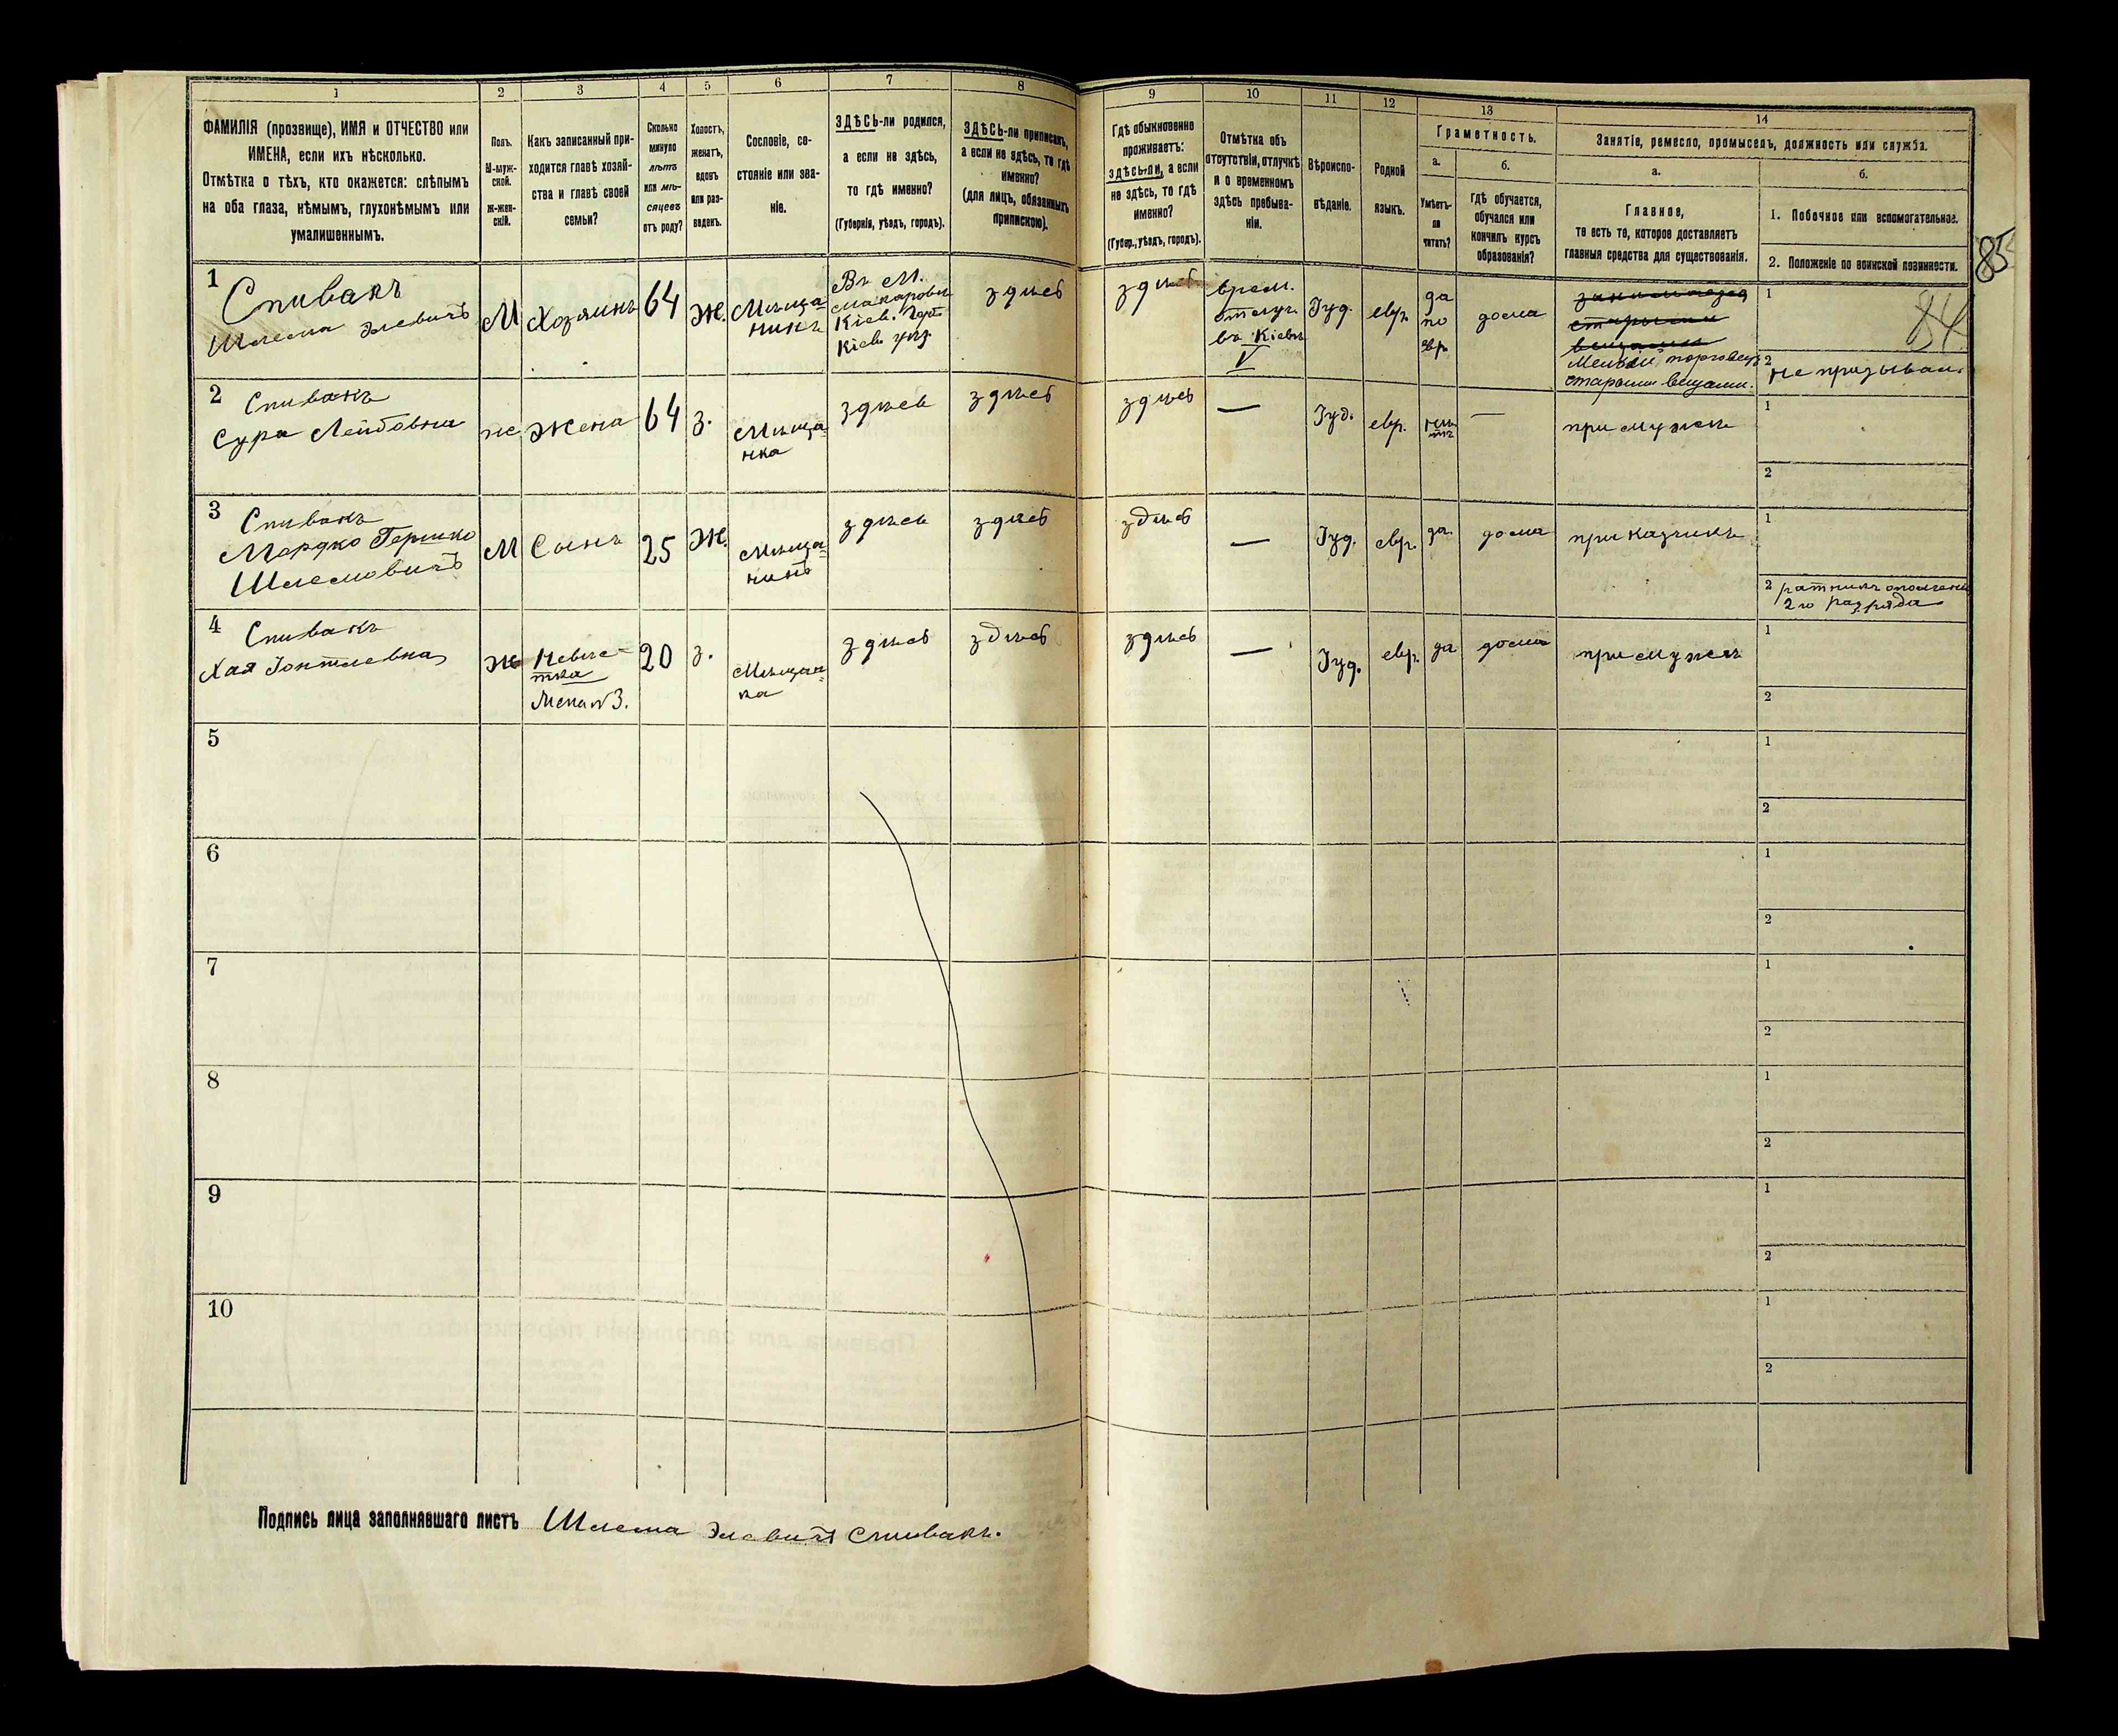 1
2
3
4
5
6
7
8
9
10
11
12
13
14
ФАМИЛІЯ (прозвище), ИМЯ и ОТЧЕСТВО или
ИМЕНА, если ихъ нѣсколько.
Отмѣтка о тѣхъ, кто окажется: слѣпымъ
на оба глаза, нѣмымъ, глухонѣмымъ или
умалишеннымъ.
Полъ.
М-муж-
ской.
Ж-жен-
скій.
Какъ записанный при-
ходится главѣ хозяй-
ства и главѣ своей
семьи?
Сколько
минуло
лѣтъ
или мѣ-
сяцевъ
отъ роду?
Холостъ,
женатъ,
вдовъ
или раз-
веденъ.
Сословіе, со-
стояніе или зва-
ніе.
ЗДѢСЬ-ли родился,
а если не здѣсь,
то гдѣ именно?
(Губернія, уѣздъ, городъ).
ЗДѢСЬ-ли приписанъ,
а если не здѣсь, то гдѣ
именно?
(для лицъ, обязанныхъ
припискою).
Гдѣ обыкновенно
проживаетъ:
здѣсь-ли, а если
не здѣсь, то гдѣ
именно?
(Губер., уѣздъ, городъ).
Отмѣтка объ
отсутствіи, отлучкѣ
и о временномъ
здѣсь пребыва-
ніи.
Вѣроиспо-
вѣданіе.
Родной
языкъ.
Грамотность.
а.
Умѣетъ-
ли
читать?
б.
Гдѣ обучается,
обучался или
кончилъ курсъ
образованія?
Занятіе, ремесло, промыселъ, должность или служба.
а.
Главное,
то есть то, которое доставляетъ
главныя средства для существованія.
б.
1. Побочное или вспомогательное.
2. Положеніе по воинской повинности.
85
84
1
Спивакъ
Шлема Элевичъ
М
Хозяинъ
64
Ж.
Мѣща-
нинъ
Въ М.
Макаровѣ
Кіев. губ
Кіев. уѣз.
здѣсь
здѣсь
врем.
отлуч.
въ Кіевъ
V
Іуд.
евр.
да
по
евр.
дома
Мелкій торговецъ
старыми вещами.
1
2 не призывал.
2
Спивакъ
Сура Лейбовна
ж
Жена
64
з.
Мѣща-
нка
здѣсь
здѣсь
здѣсь
—
Іуд.
евр.
нѣ-
тъ
—
при мужѣ
1
2
3
Спивакъ
Мордко Гершко
Шлемовичъ
М
Сынъ
25
Ж.
Мѣща-
нинъ
здѣсь
здѣсь
здѣсь
—
Іуд.
евр.
да.
дома
приказчикъ
1
2 ратникъ ополчения
2го разряда
4
Спивакъ
Хая Іонтлевна
Ж
Невѣс-
тка
Жена №3.
20
з.
Мѣщан-
ка
здѣсь
здѣсь
здѣсь
—
Іуд.
евр.
да
дома
при мужѣ
1
2
5
1
2
6
1
2
7
1
2
8
1
2
9
1
2
10
1
2
Подпись лица заполнявшаго листъ Шлема Элевичъ Спивакъ.